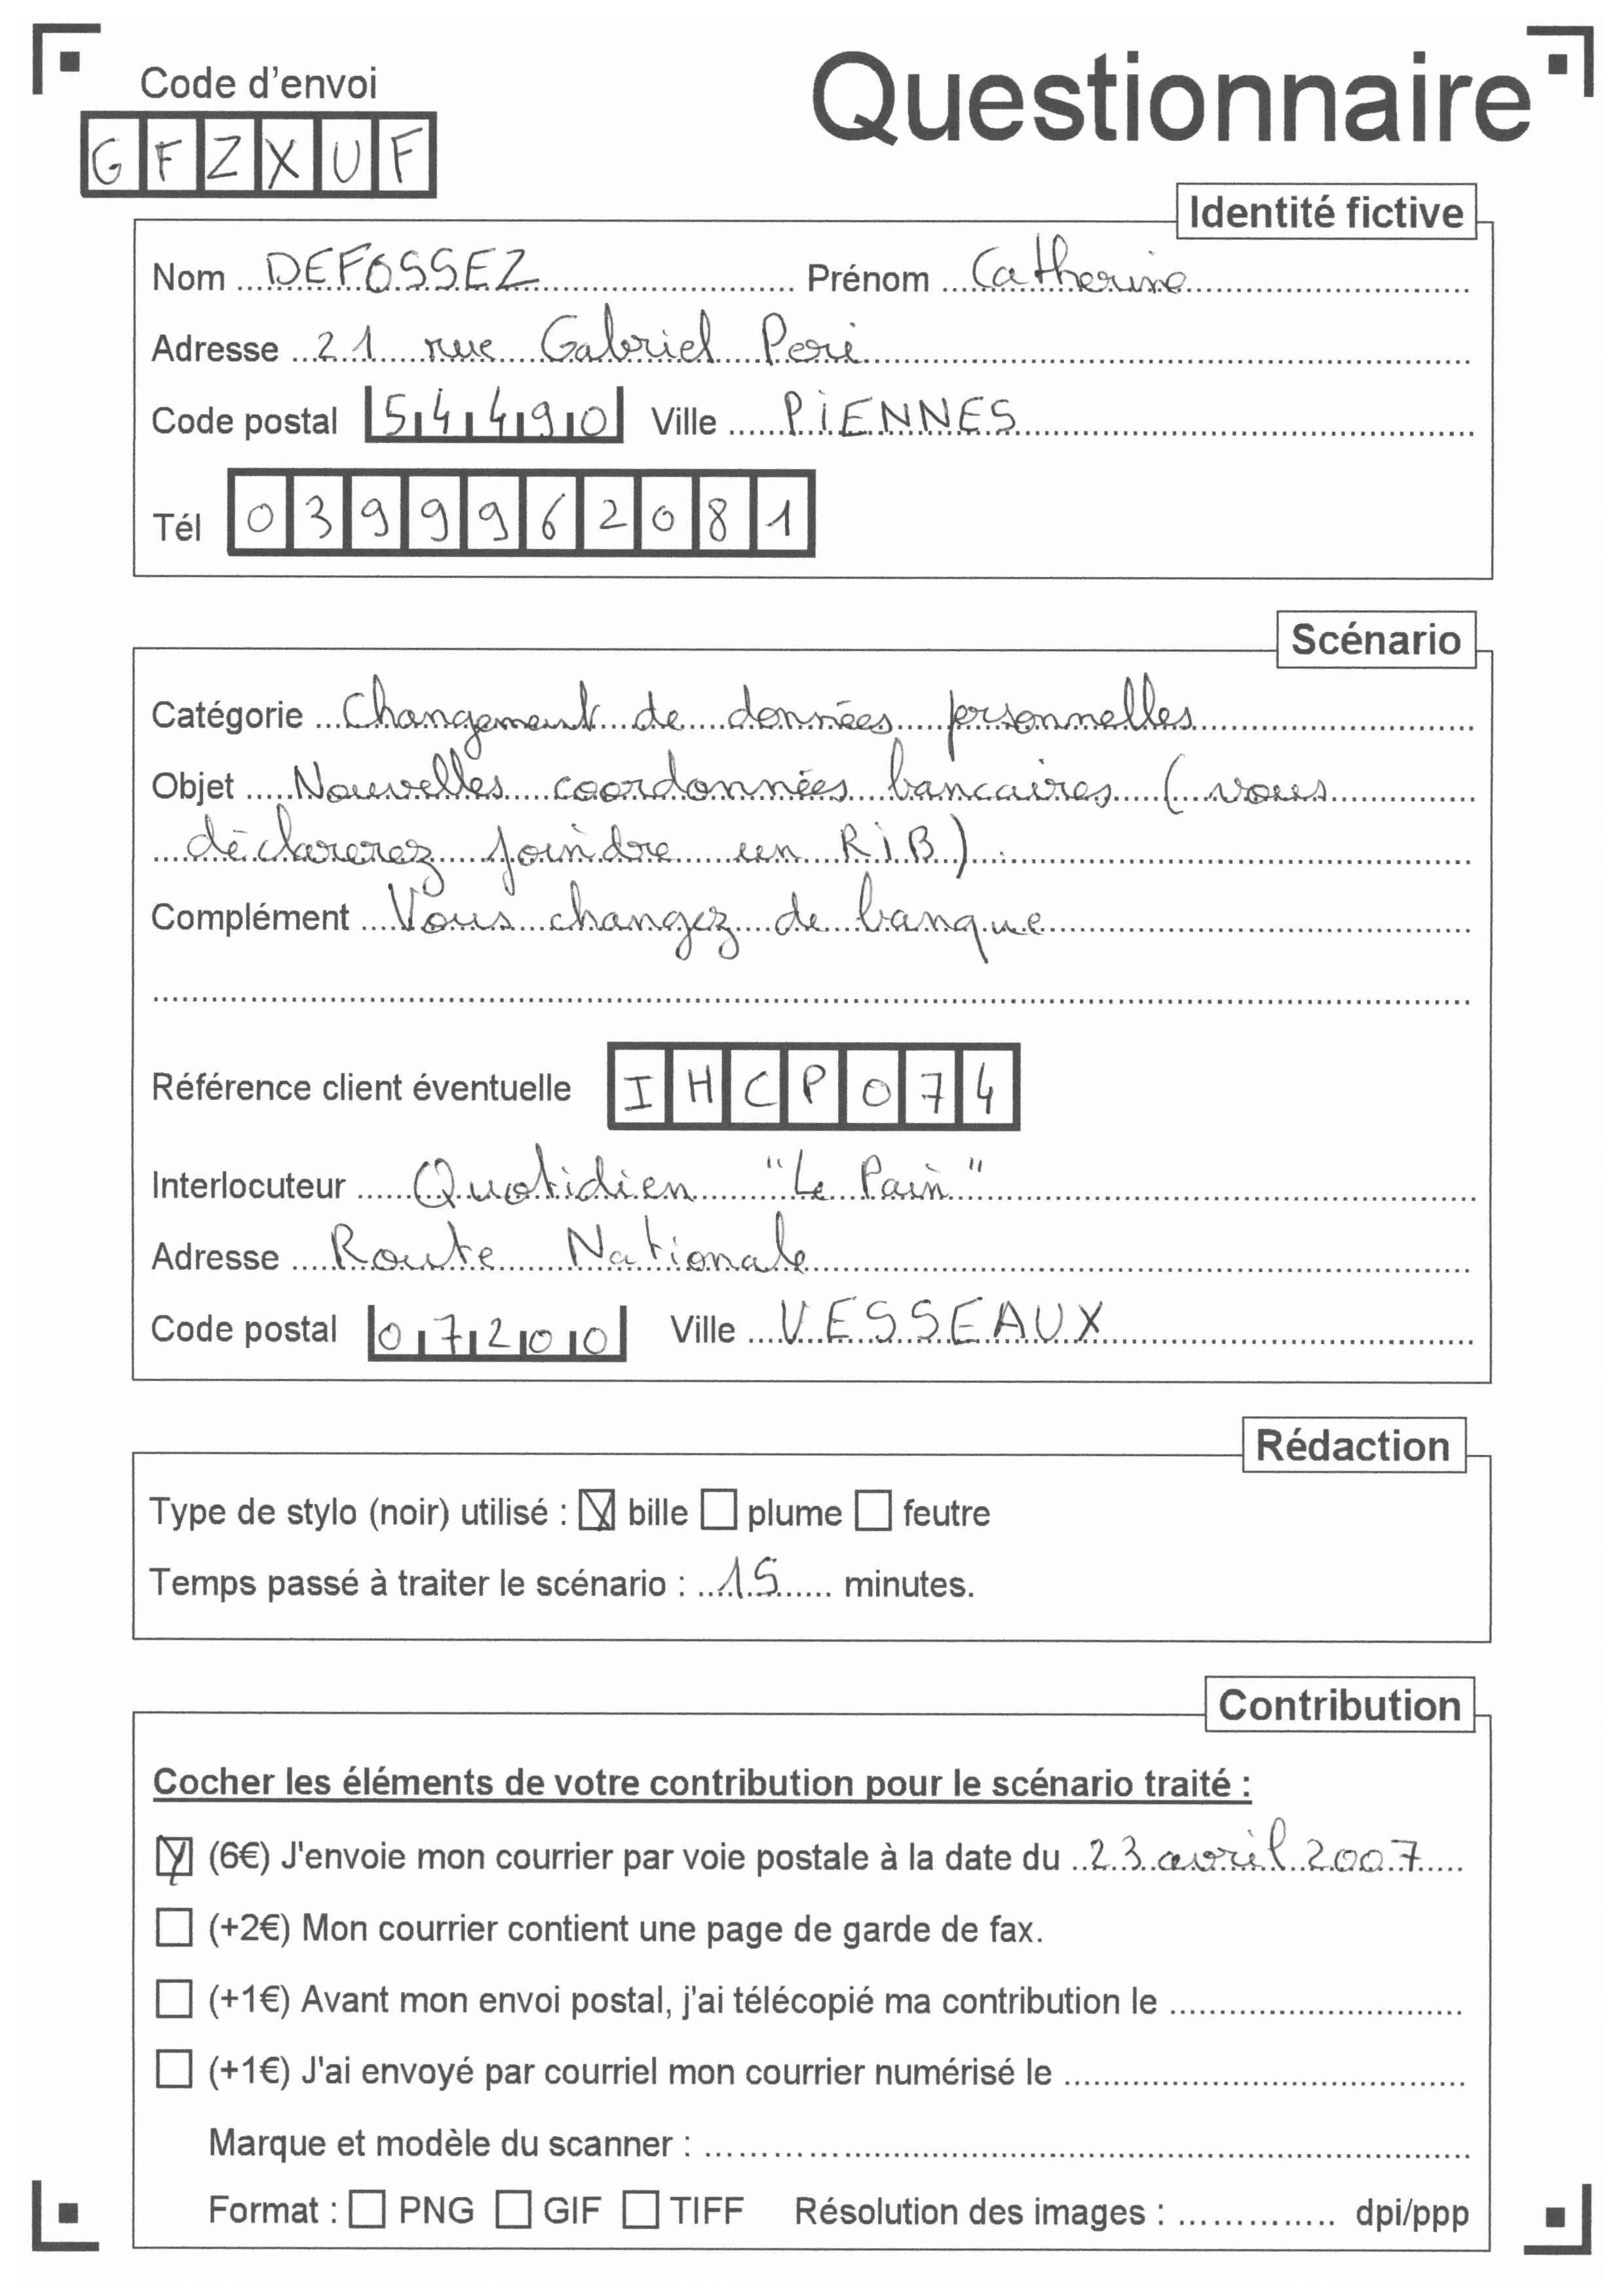 Code d'envoi
GFZXUF
Questionnaire
Identité fictive
Nom DEFOSSEZ Prénom Catherine
Adresse 21 rue Gabriel Peri
Code postal 54490 Ville PIENNES
Tél 0399962081
Scénario
Catégorie Changement de données personnelles
Objet Nouvelles coordonnées bancaires (vous
déclarerez joindre un RIB).
Complément Vous changez de banque
Référence client éventuelle IHCP074
Interlocuteur Quotidien "Le Pain"
Adresse Route Nationale
Code postal 07200 Ville VESSEAUX
Rédaction
Type de stylo (noir) utilisé : ☒ bille ☐ plume ☐ feutre
Temps passé à traiter le scénario : 15 minutes.
Contribution
Cocher les éléments de votre contribution pour le scénario traité :
☒ (6€) J'envoie mon courrier par voie postale à la date du 23 avril 2007
☐ (+2€) Mon courrier contient une page de garde de fax.
☐ (+1€) Avant mon envoi postal, j'ai télécopié ma contribution le
☐ (+1€) J'ai envoyé par courriel mon courrier numérisé le
Marque et modèle du scanner :
Format : ☐ PNG ☐ GIF ☐ TIFF Résolution des images : dpi/ppp